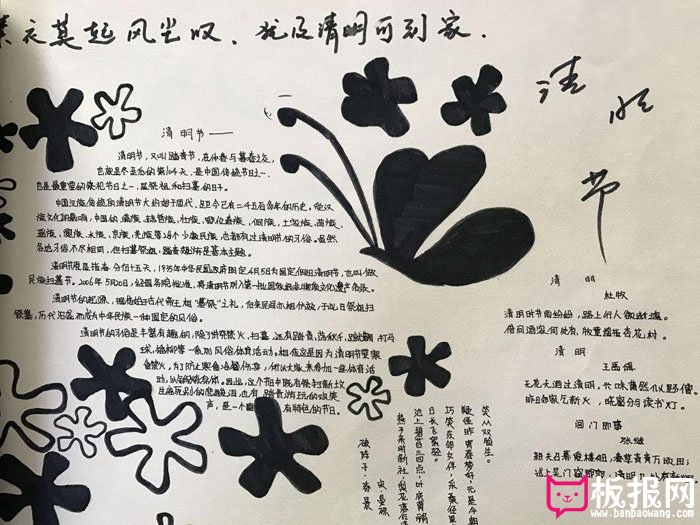 衣莫起风尘叹、犹及清明可到家.
清明节
清明节——
清明节，又叫踏青节，在仲春与暮春之交，
也就是冬至后的第104天，是中国传统节日之一，
也是最重要的祭祀节日之一，是祭祖和扫墓的日子。
中国汉族传统的清明节大约始于周代，距今已有二千五百多年的历史。受汉
族文化的影响，中国的满族、赫哲族、壮族、鄂伦春族、侗族、土家族、苗族、
瑶族、黎族、水族、京族、羌族等24个少数民族，也都有过清明节的习俗。虽然
各地习俗不尽相同，但扫墓祭祖、踏青郊游是基本主题。
清明节原是指春分后十五天，1935年中华民国政府明定4月5日为国定假日清明节，也叫做
民族扫墓节。2006年5月20日，经国务院批准，将清明节列入第一批国家级非物质文化遗产名录。
清明节的起源，据传始于古代帝王将相"墓祭"之礼，后来民间亦相仿效，于此日祭祖扫
墓，历代沿袭而成为中华民族一种固定的风俗。
清明节的习俗是丰富有趣的，除了讲究禁火、扫墓，还有踏青、荡秋千、蹴鞠、打马
球、插柳等一系列风俗体育活动。相传这是因为清明节要寒
食禁火，为了防止寒食冷餐伤身，所以大家来参加一些体育活
动，以锻炼身体。因此，这个节日中既有祭扫新坟
生离死别的悲酸泪，也有踏青游玩的欢笑
声，是一个
有特色的节日。
清明
杜牧
清明时节雨纷纷，路上行人欲断魂。
借问酒家何处有，牧童遥指杏花村。
清明
王禹偁
无花无酒过清明，兴味萧然似野僧。
昨日邻家乞新火，晓窗分与读书灯。
闾门即事
张继
耕夫召募逐楼船，春草青青万顷田；
试上吴门窥郡郭，清明几处有新烟。
破阵子·春景
宋 晏殊
燕子来时新社，梨花落后
池上碧苔三四点，叶底黄鹂
日长飞絮轻。
巧笑东邻女伴，采桑径里
疑怪昨宵春梦好，元是今朝
笑从双脸生。
板报网
www.banbaowang.com